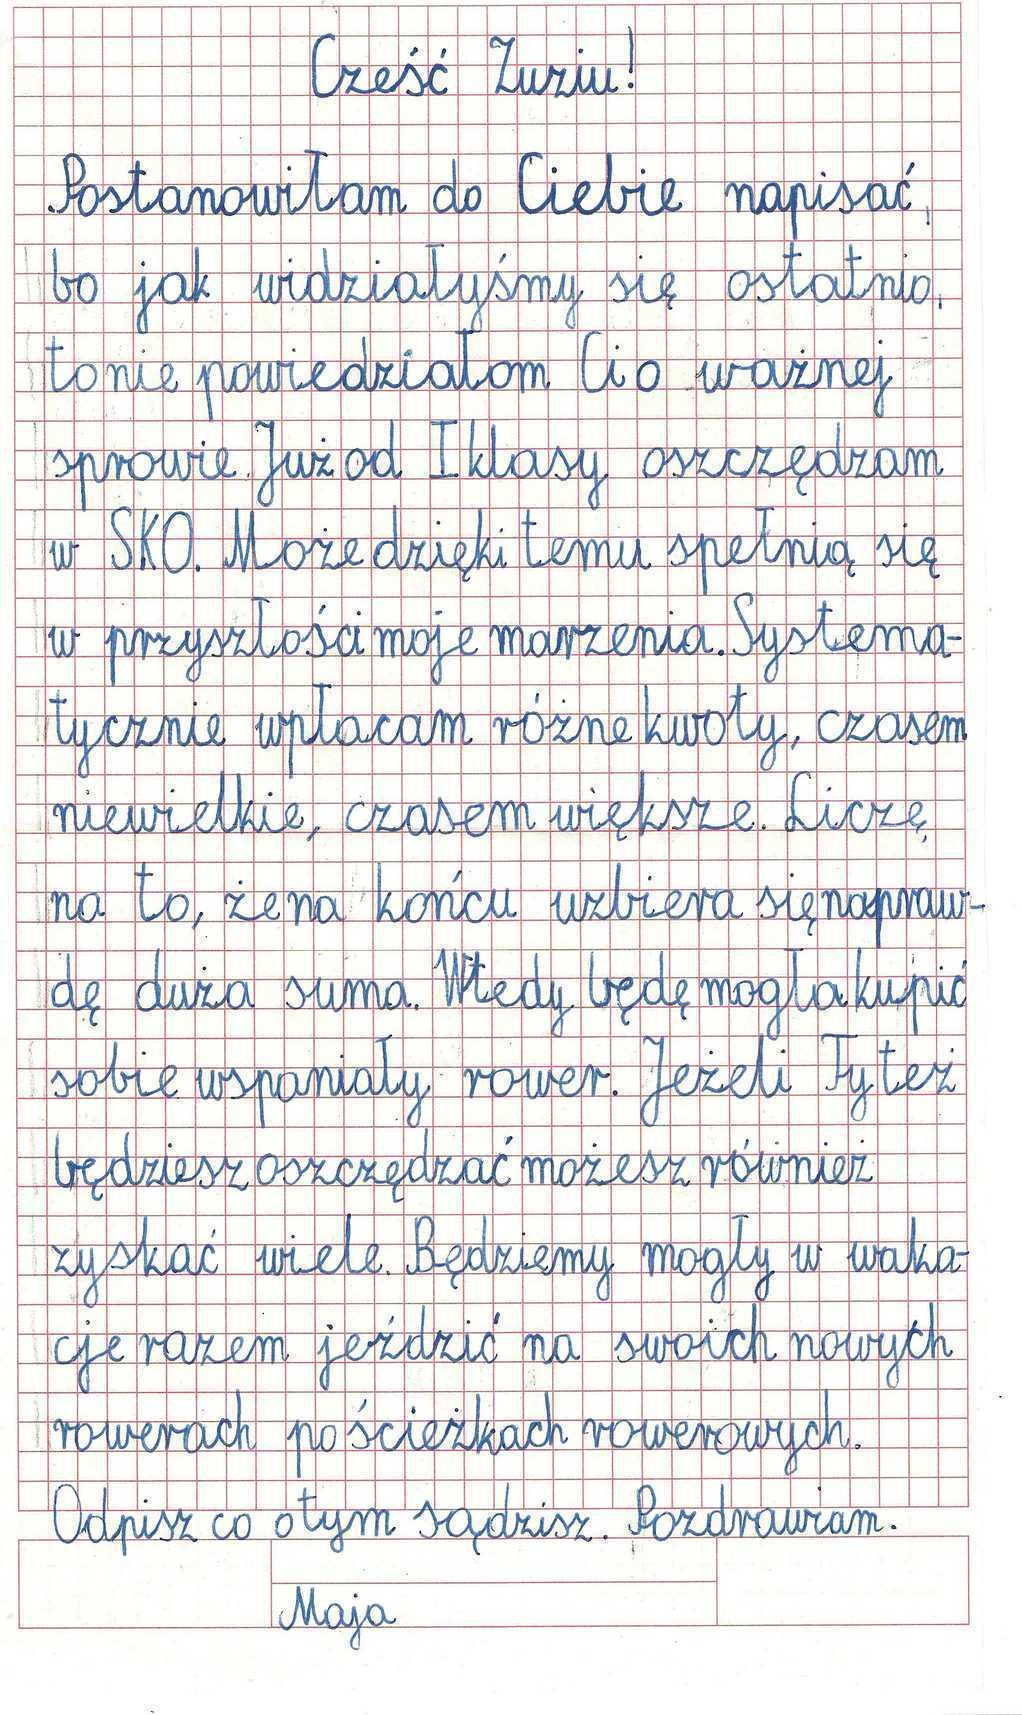 Cześć Zuziu!
Postanowiłam do Ciebie napisać,
bo jak widziałyśmy się ostatnio,
to nie powiedziałam Ci o ważnej
sprawie. Już od I klasy oszczędzam
w SKO. Może dzięki temu spełnią się
w przyszłości moje marzenia. Systema-
tycznie wpłacam różne kwoty, czasem
niewielkie, czasem większe. Liczę
na to, że na końcu uzbiera się napraw-
dę duża suma. Wtedy będę mogła kupić
sobie wspaniały rower. Jeżeli Ty też
będziesz oszczędzać możesz również
zyskać wiele. Będziemy mogły w waka-
cje razem jeździć na swoich nowych
rowerach po ścieżkach rowerowych.
Odpisz co o tym sądzisz. Pozdrawiam.
Maja